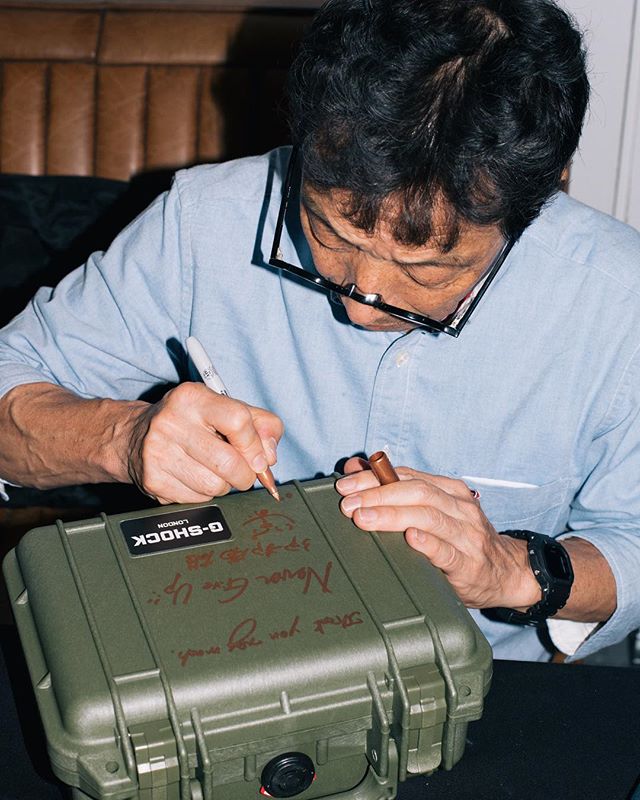 G-SHOCK
LONDON
Never Give Up
Thank you very much.